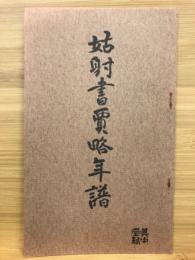 姑射書賈略年譜